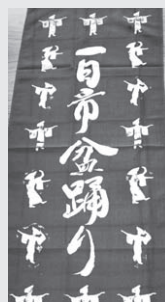 一日市盆踊り